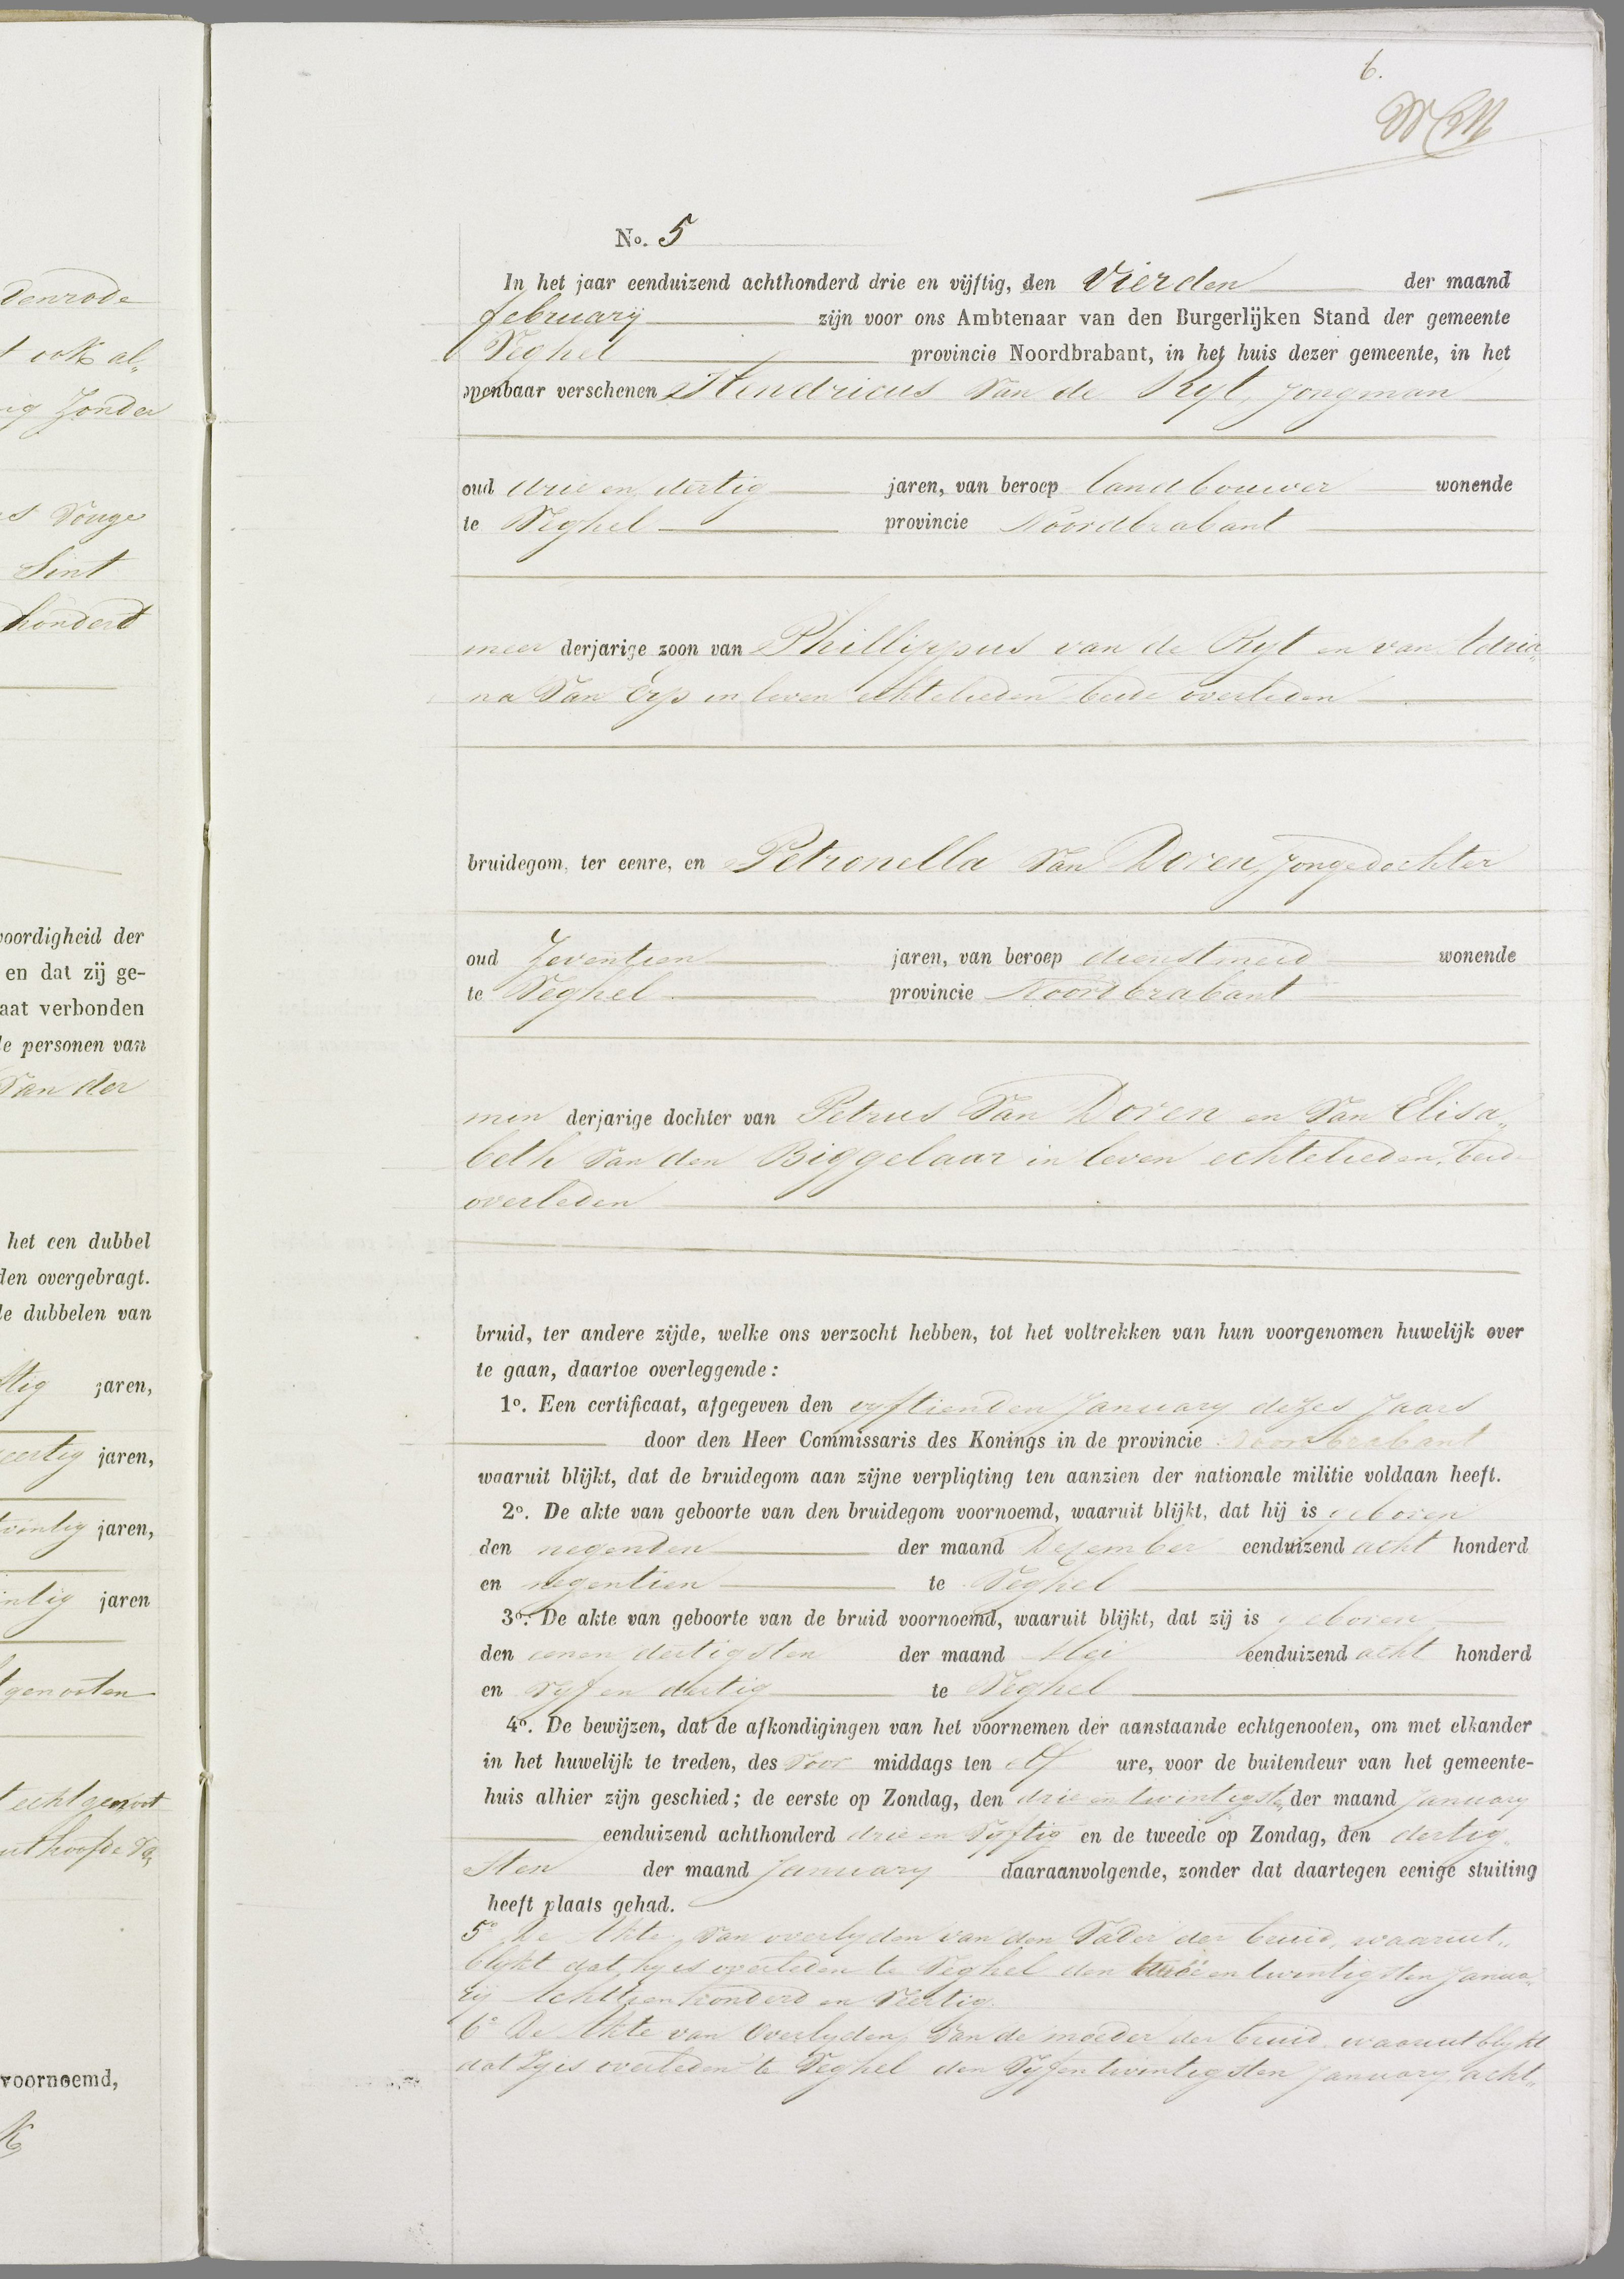 Denrode
t ook al„
ig zonder
s Vonge
Sint
honderd
voordigheid der
en dat zij ge-
aat verbonden
le personen van
Van der
het een dubbel
den overgebragt.
le dubbelen van
stig jaren,
eertig jaren,
twintig jaren,
intig jaren
tgenooten
t echtgenoot
voornoemd,
6.
No. 5
In het jaar eenduizend achthonderd drie en vijftig, den Vierden der maand
february zijn voor ons Ambtenaar van den Burgerlijken Stand der gemeente
Veghel provincie Noordbrabant, in het huis dezer gemeente, in het
openbaar verschenen Hendricus Van de Ryt, jongman
oud drie en dertig jaren, van beroep landbouwer wonende
te Veghel provincie Noordbrabant
meer derjarige zoon van Phillippus van de Ryt en van Adria„
na Van Erp in leven echtelieden beide overleden
bruidegom, ter eenre, en Petronella Van Doren, jongedochter
oud Zeventien jaren, van beroep dienstmeid wonende
te Veghel provincie Noordbrabant
min derjarige dochter van Petrus Van Doren en Van Elisa„
beth Van den Biggelaar in leven echtelieden, beide
overleden
bruid, ter andere zijde, welke ons verzocht hebben, tot het voltrekken van hun voorgenomen huwelijk over
te gaan, daartoe overleggende:
1o. Een certificaat, afgegeven den vyftienden January dezes Jaars
door den Heer Commissaris des Konings in de provincie Noordbrabant
waaruit blijkt, dat de bruidegom aan zijne verpligting ten aanzien der nationale militie voldaan heeft.
2o. De akte van geboorte van den bruidegom voornoemd, waaruit blijkt, dat hij is geboren
den negenden der maand Dezember eenduizend acht honderd
en negentien te Veghel
3o. De akte van geboorte van de bruid voornoemd, waaruit blijkt, dat zij is geboren
den eenen dertigsten der maand Mei eenduizend acht honderd
en Vyf en dertig te Veghel
4o. De bewijzen, dat de afkondigingen van het voornemen der aanstaande echtgenooten, om met elkander
in het huwelijk te treden, des Voor middags ten elf ure, voor de buitendeur van het gemeente-
huis alhier zijn geschied; de eerste op Zondag, den drie en twintigste der maand January
eenduizend achthonderd drie en Vyftig en de tweede op Zondag, den dertig„
sten der maand January daaraanvolgende, zonder dat daartegen eenige stuiting
heeft plaats gehad.
5o De Akte van overlyden van den Vader der bruid, waaruit„
blykt dat hy is overleden te Veghel den en twintigsten Janua„
ry Achttien honderd en Veertig.
6o De Akte van Overlyden van de moeder der bruid waaruit blykt
dat Zy is overleden te Veghel den Vyf en twintigsten January acht„